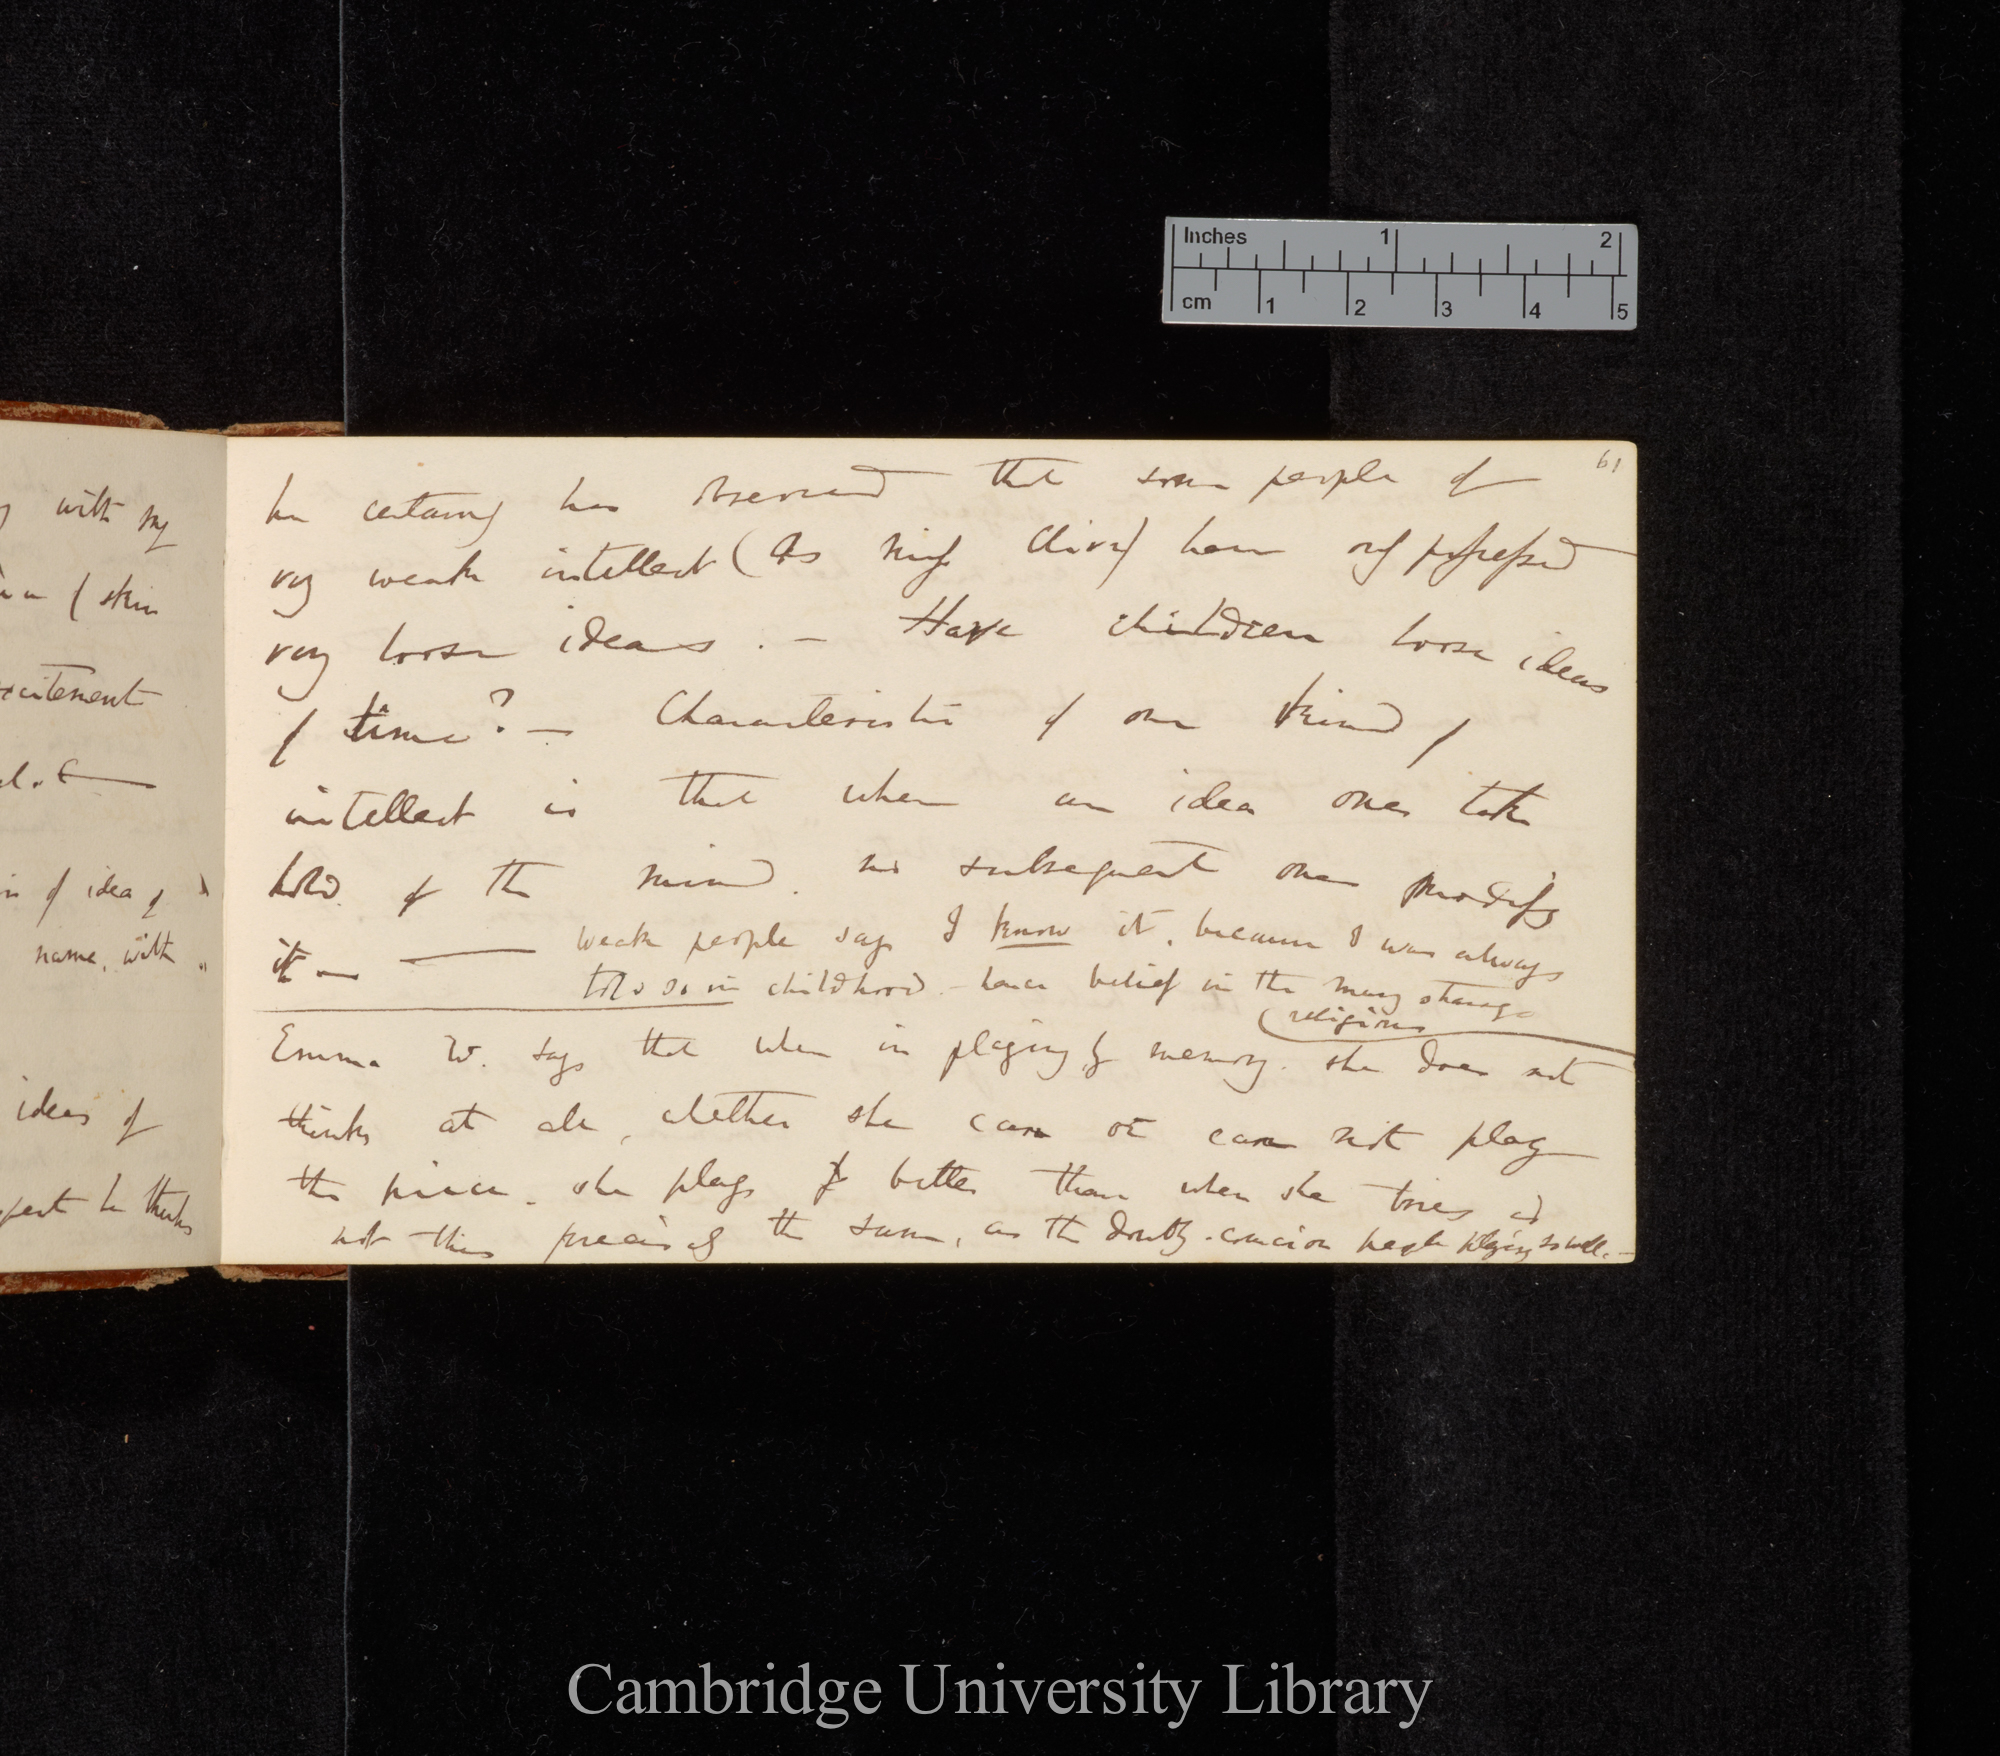 with my
(skin
excitement
of idea of
name, with
ideas of
he thinks
61
he certainly has observed that some people of
very weak intellect (as Miss Clive) have only possessed
very loose ideas. — Have children loose ideas
of time? — Characteristic of one kind of
intellect is that when an idea once take
hold of the mind, no subsequent ones modify
it — —— weak people say I know it, because I was always
told so in childhood — hence belief in the many strange
religions
Emma W. says that when in playing by memory, she does not
think at all, whether she can or can not play
the piece, she plays better than when she tries is
not this precisely the same, as the double-conscious people playing so well. —
Inches 1 2
cm 1 2 3 4 5
Cambridge University Library